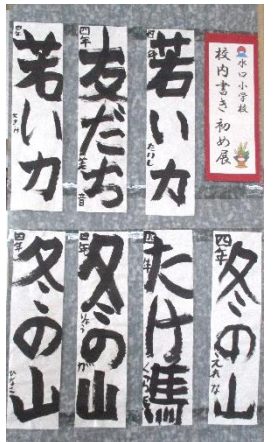 水口小学校
校内書き初め展
若い力
四年
友だち
四年
若い力
四年
冬の山
四年
えれな
たけ馬
四年
冬の山
四年
冬の山
四年
ひなこ